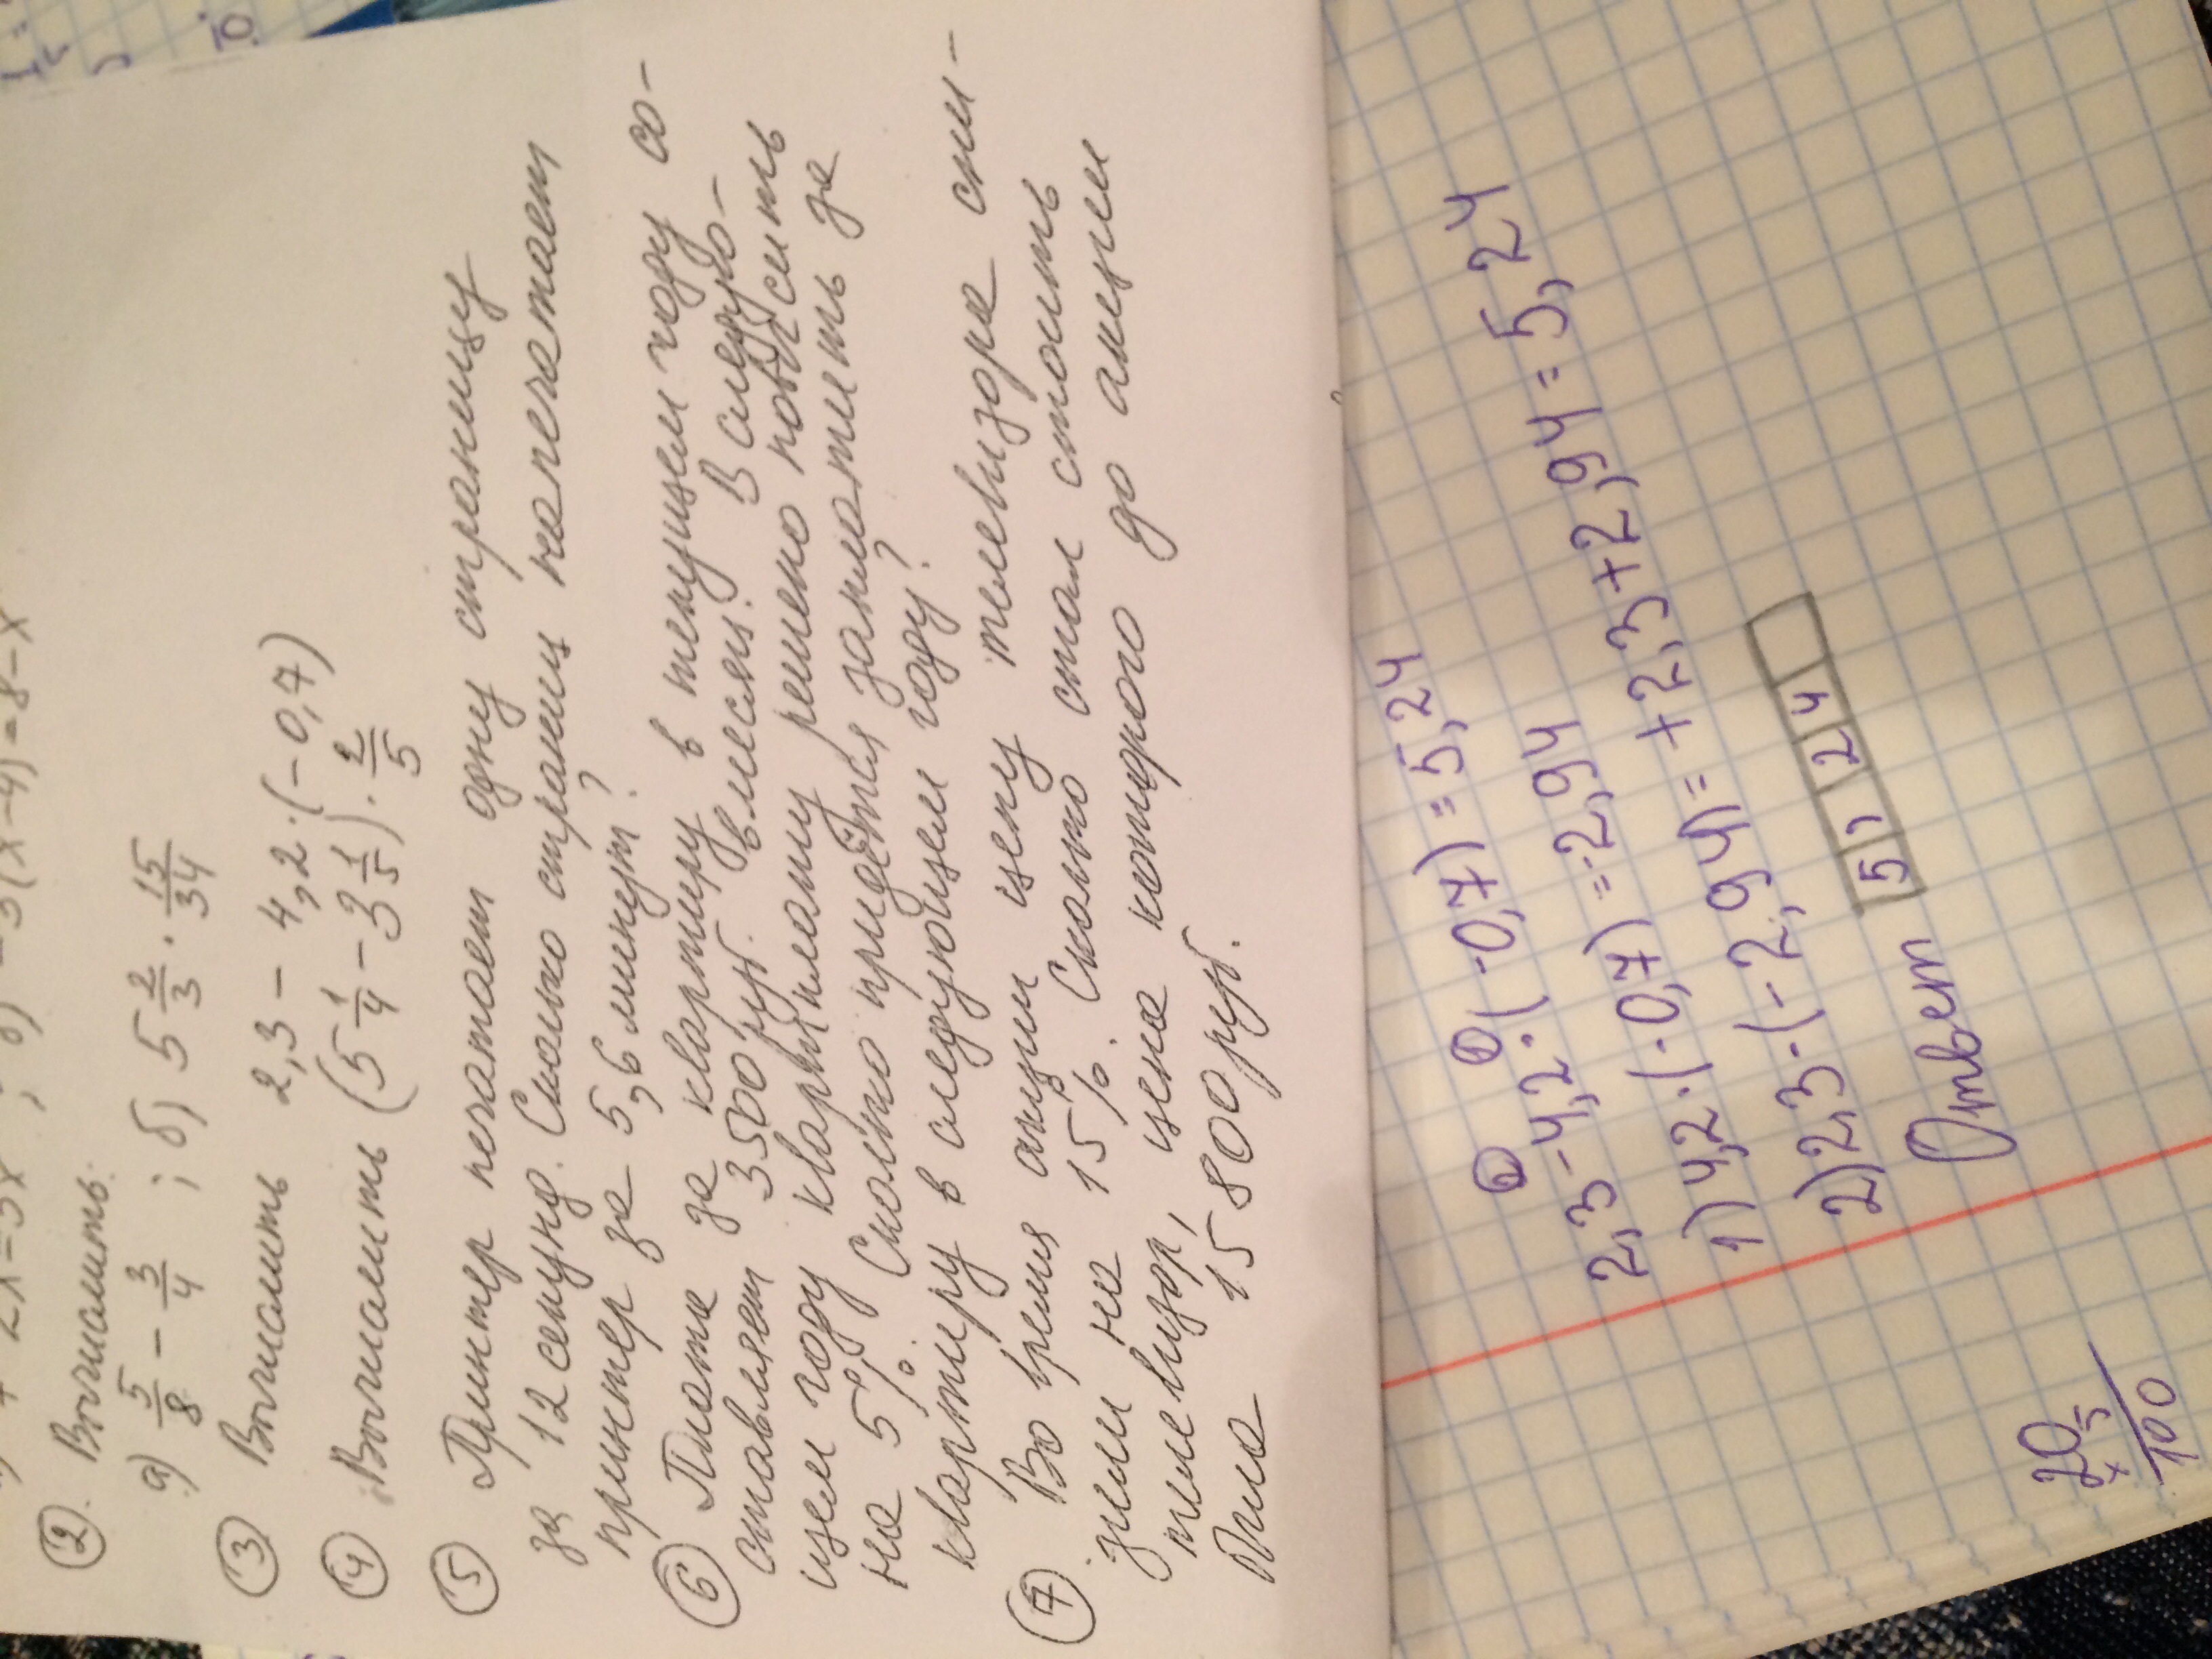 2х=3х ; б) -3(х-4)=8-х
② Вычислить.
а) 5/8 - 3/4 ; б) 5 2/3 · 15/34
③ Вычислить 2,3 - 4,2·(-0,7)
④ Вычислить (5 1/4 - 3 1/5) · 2/5
⑤ Принтер печатает одну страницу
за 12 секунд. Сколько страниц напечатает
принтер за 5,6 минут?
⑥ Плата за квартиру в текущем году со-
ставляет 3500 руб. в месяц. В следую-
щем году квартплату решено повысить
на 5%. Сколько придётся заплатить за
квартиру в следующем году?
⑦ Во время акции цену телевизора сни-
зили на 15%. Сколько стал стоить
телевизор, цена которого до акции
была 15 800 руб.
2,3-4,2·(-0,7)=5,24
1) 4,2·(-0,7)=-2,94
2) 2,3-(-2,94)=+2,3+2,94=5,24
Ответ 5,24
20
×5
100